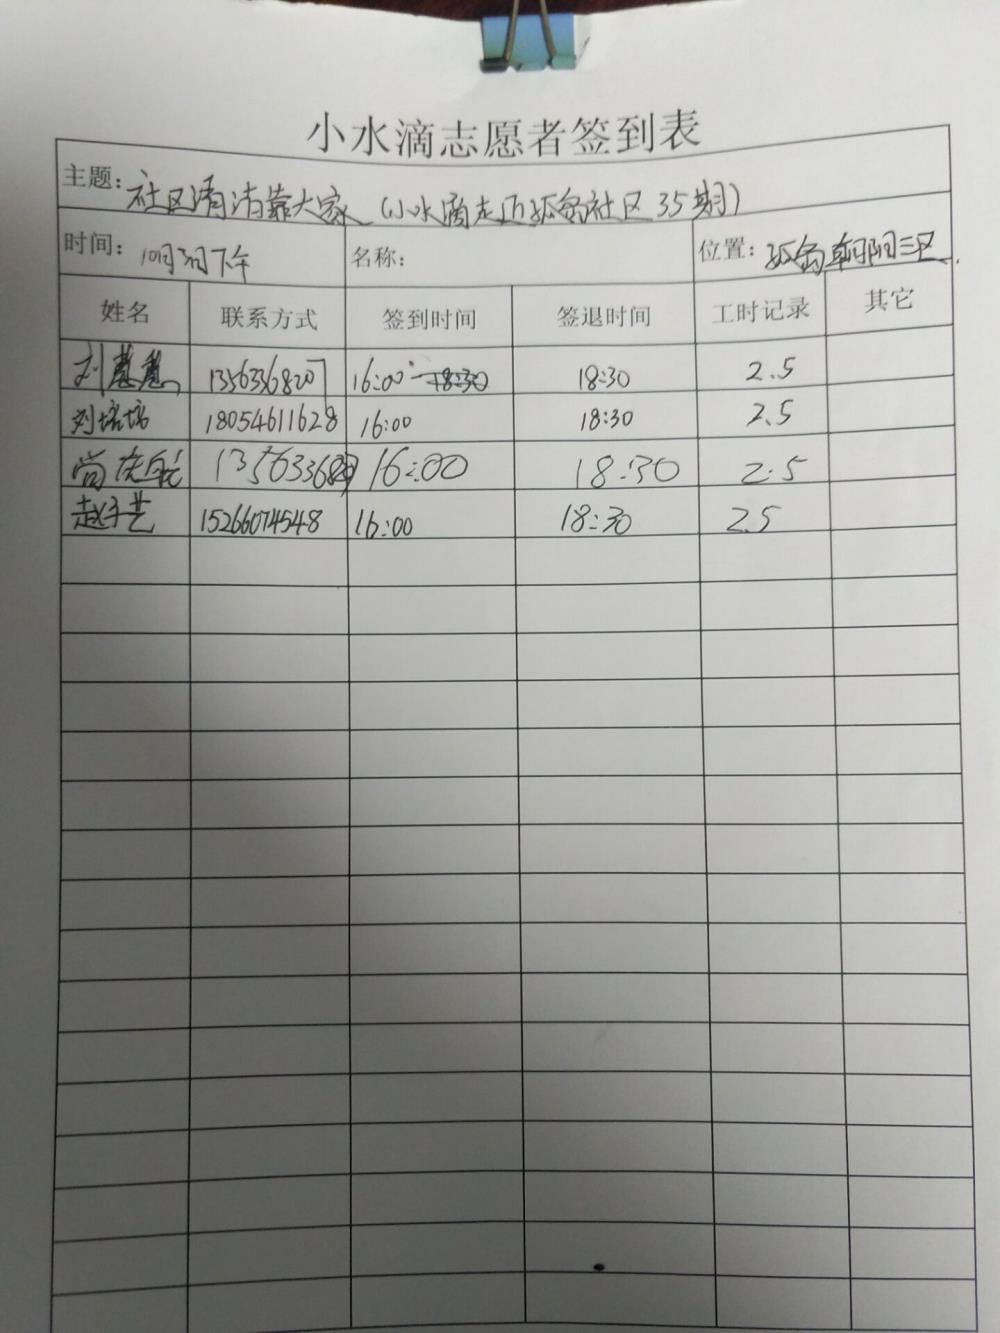 小水滴志愿者签到表
主题: 社区清洁靠大家（小水滴走进孤岛社区35期）
时间: 10月3日下午 名称: 位置: 孤岛朝阳三区
姓名 联系方式 签到时间 签退时间 工时记录 其它
刘慧慧 13563368207 16:00 18:30 2.5
刘培培 18054611628 16:00 18:30 2.5
尚 16:00 18:30 2.5
赵子艺 15266074548 16:00 18:30 2.5